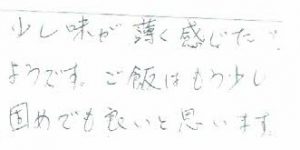 少し味が薄く感じた
ようです。ご飯はもう少し
固めでも良いと思います。